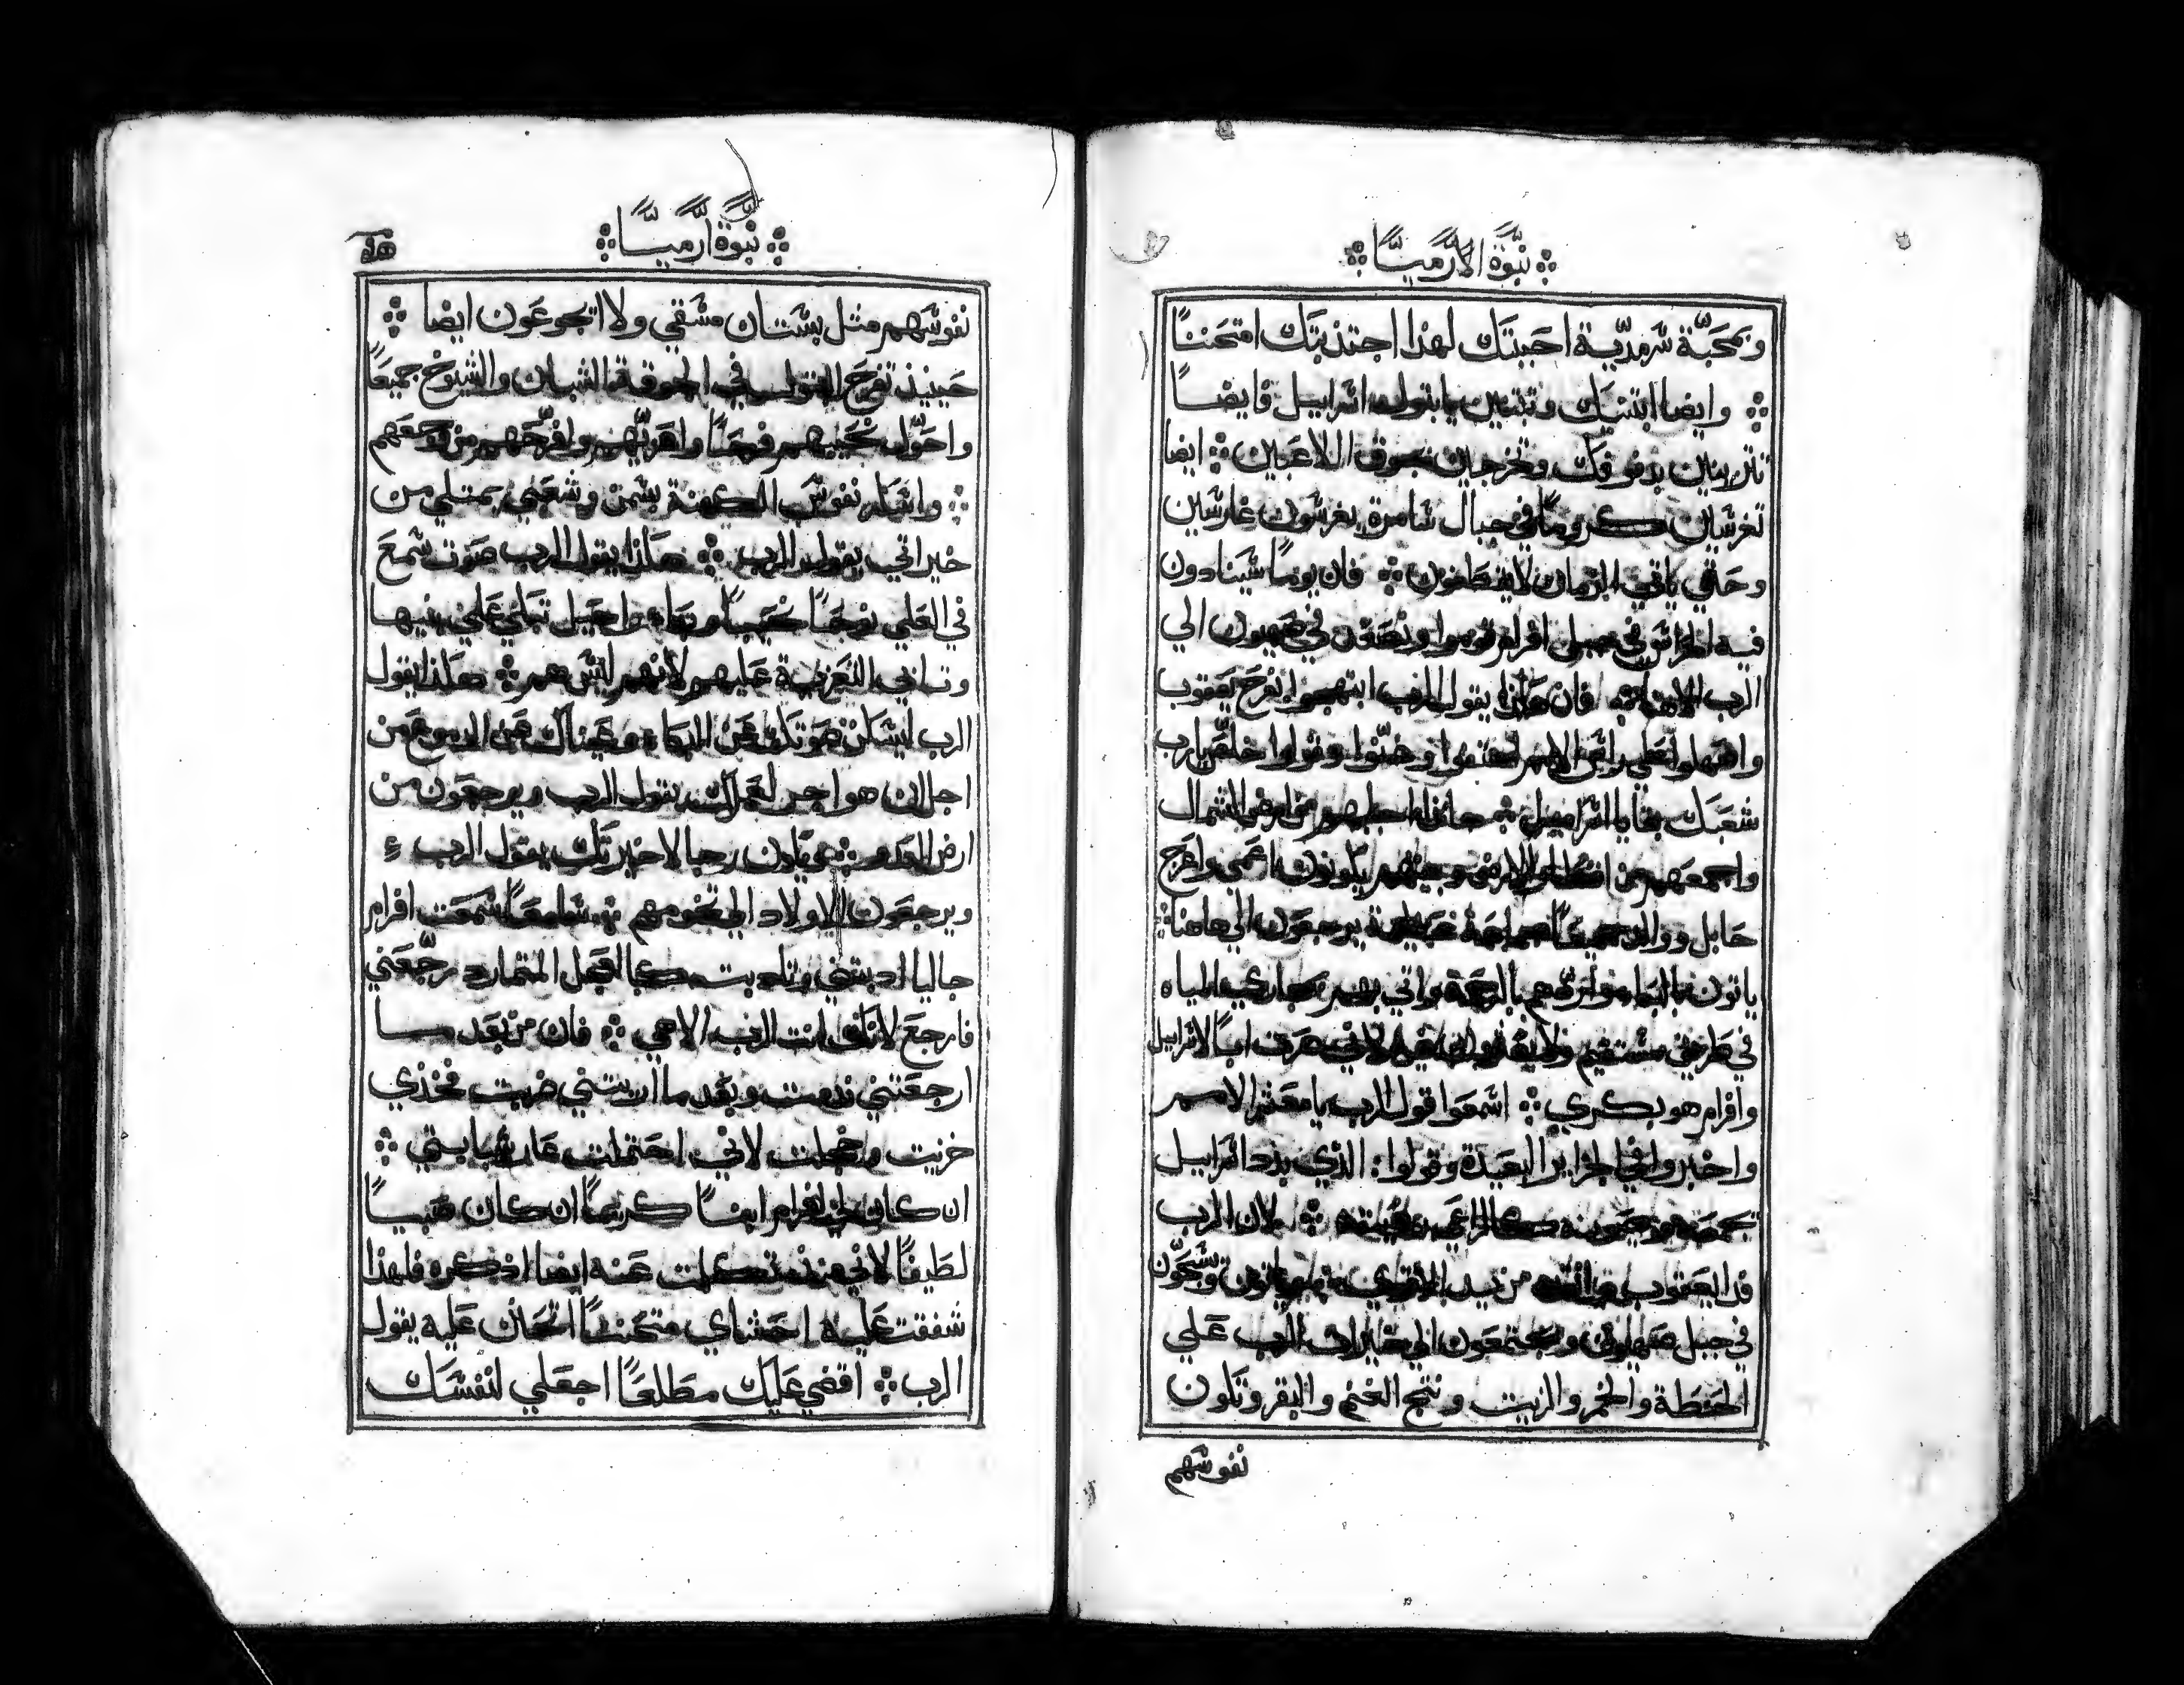 نبوة ارميا
وبمحبة سرمدية احببتك لهذا اجتذبتك امتحننًا
وايضا ابتنيك وتبنين يا بتولة اسراييل فايضًا
تتزينين بدفوفك وتخرجين بجوق اللاعبين ايضا
تغرسين كرومًا في جبال سامرة يغرسون غارسين
وحتي ياتي الزمان لا يقطفون فان يومًا سينادون
فيه الحراس في جبل افرام قوموا ونصعد في صهيون الي
الرب الاهنا فان هكذا يقول الرب ابتهجوا بفرح يعقوب
واصهلوا علي راس الامم اهتفوا وغنوا وقولوا خلص يا رب
شعبك بقايا اسراييل هانذا اجلبهم من ارض الشمال
واجمعهم من اقطار الارض وبينهم يكونون اعمي واعرج
حابل ووالد جميعًا جماعة عظيمة يرجعون الي هاهنا
ياتون بالبكا واردهم بالرحمة واتي بهم مجاري المياه
في طريق مستقيم ولا يعثرون فيه لاني صرت ابًا لاسراييل
وافرام هو بكري اسمعوا قول الرب يا معشر الامم
واخبروا في الجزاير البعيدة وقولوا الذي بدد اسراييل
يجمعه ويصونه كالراعي قطيعه لان الرب
فدا يعقوب وانقذه من يد الاقوي وياتون ويسبحون
في جبل صهيون ويجتمعون الي خيرات الرب علي
الحنطة والخمر والزيت ونتج الغنم والبقر وتكون
نفوسهم
نبوة ارميا
نفوسهم مثل بستان مسقي ولا يجوعون ايضا
حينيذ تفرح البتول في الجوقة الشبان والشيوخ جميعًا
واحول نحيبهم فرحًا واعزيهم وافرحهم من وجعهم
واسكر نفوس الكهنة بسمن وشعبي يمتلي من
خيراتي يقول الرب هكذا يقول الرب صوت سمع
في العلي نوحًا نحيبًا وبكا راحيل تبكي علي بنيها
وتابي التعزية عليهم لانهم ليس هم هكذا يقول
الرب ليسكن صوتك عن البكا وعيناك عن الدموع من
اجل ان هو اجر لعملك يقول الرب ويرجعون من
ارض العدو ويكون رجا لاخيرتك يقول الرب
ويرجعون الاولاد الي تخومهم سامعًا سمعت افرام
جاليا ادبتني وتادبت كالعجل المتمارد رجعني
فارجع لانك انت الرب الاهي فان من بعد ما
ارجعتني ندمت وبعد ما اريتني ضربت فخذي
خزيت وخجلت لاني احتملت عار شبابيتي
ان كان لي افرام ابنًا كريمًا ان كان صبيًا
لطيفًا لاني منذ تكلمت عنه ايضا اذكره فلهذا
شفقت عليه احشاي متحننًا اتحنن عليه يقول
الرب اقضي عليك مطلعًا اجعلي لنفسك